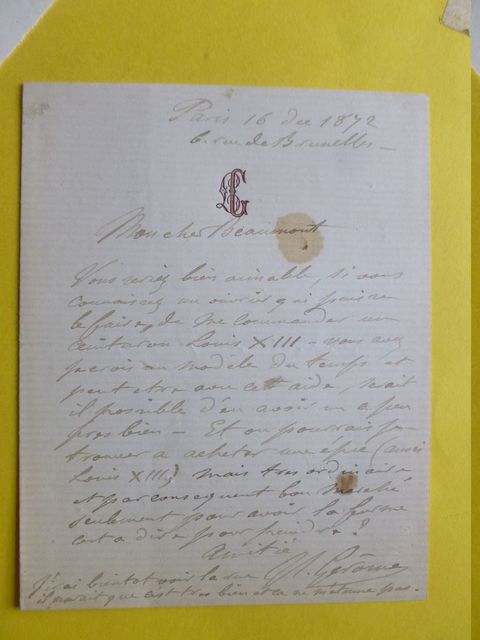 Paris 16 dec 1872
6. rue de Bruxelles —
Mon cher Beaumont
Vous seriez bien aimable, si vous
connaissez un ouvrier qui puisse
le faire, de me commander un
ceinturon Louis XIII — vous avez
je crois un modèle du temps et
peut etre avec cette aide, serait
il possible d'en avoir un a peu
pres bien — Et ou pourrais je
trouver a acheter une épée (aussi
Louis XIII) mais tres ordinaire
et par consequent bon marché
seulement pour avoir la forme
c'est a dire pour peindre?
amitié
J. L. Gerôme
J'irai bientot voir la rue
il parait que c'est tres bien et ca ne m'etonne pas.